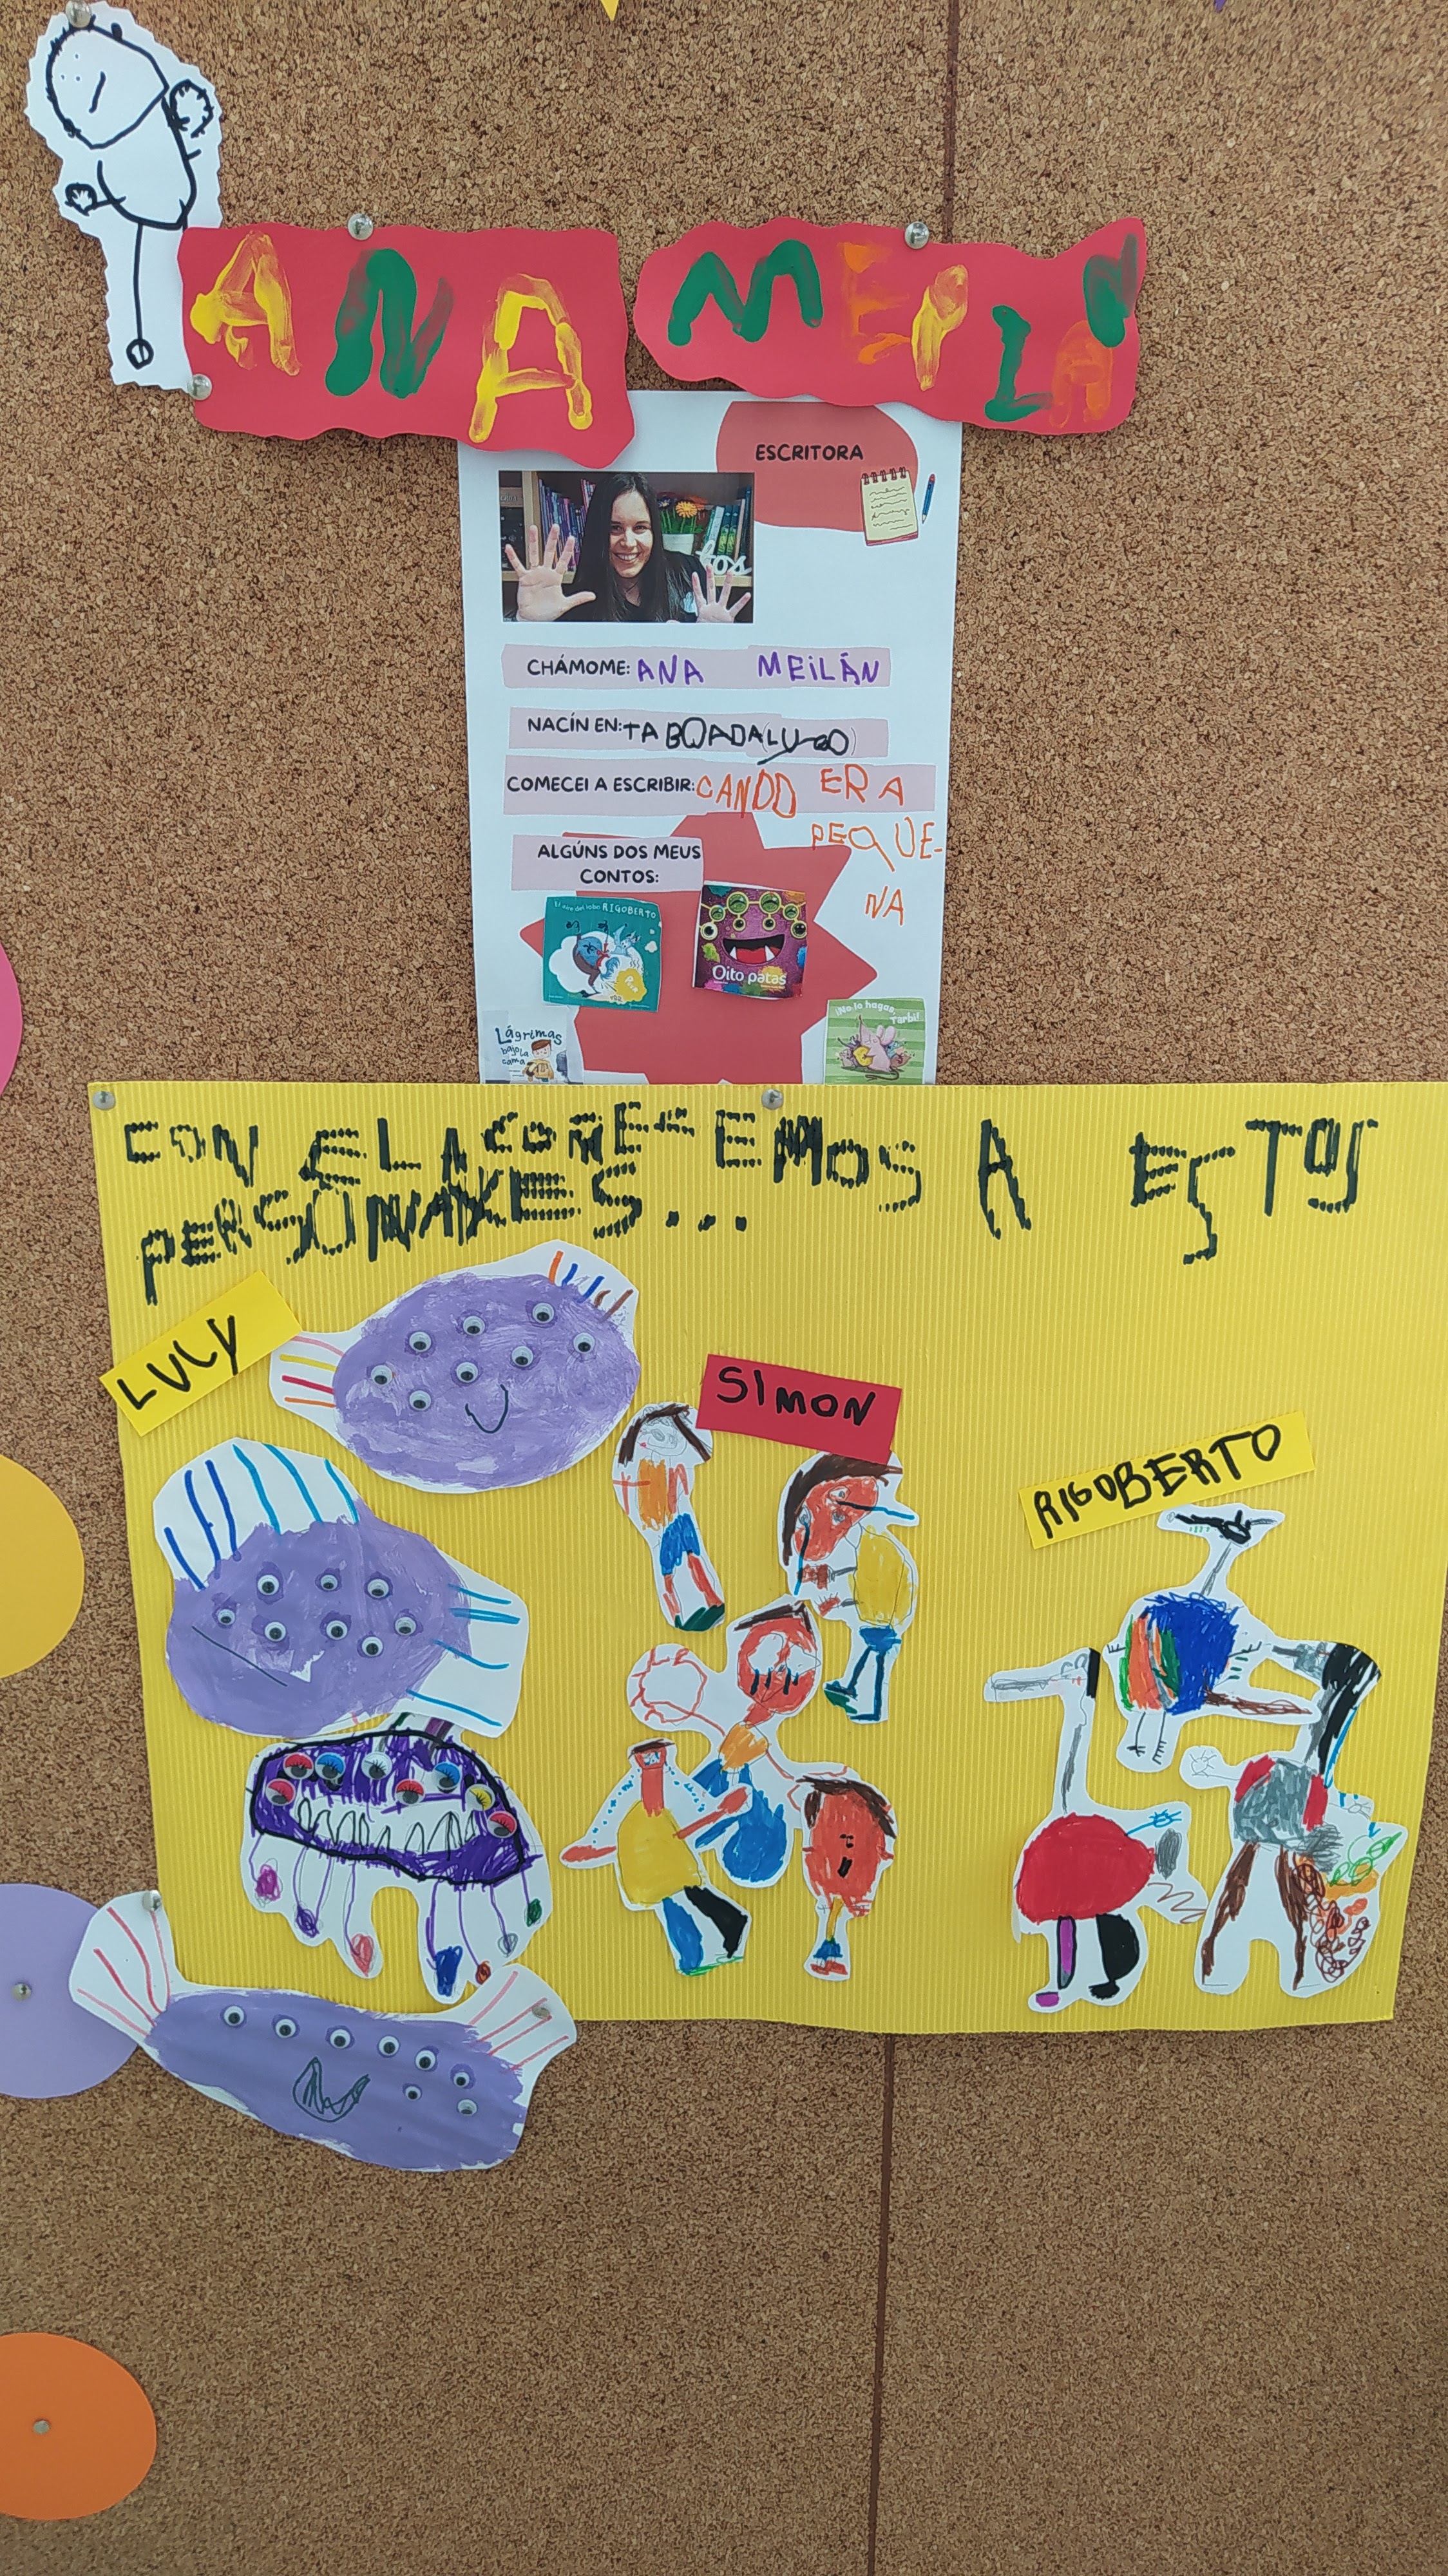 ANA MEILAN
ESCRITORA
CHÁMOME: ANA MEILÁN
NACÍN EN: TABOADA(LUGO)
COMECEI A ESCRIBIR: CANDO ERA
PEQUE-
NA
ALGÚNS DOS MEUS
CONTOS:
El aire del lobo RIGOBERTO
Oito patas
Lágrimas
bajo la
cama
¡No lo hagas,
Tarbi!
CON ELA COÑECEMOS A ESTOS
PERSONAXES...
LUCY
SIMON
RIGOBERTO